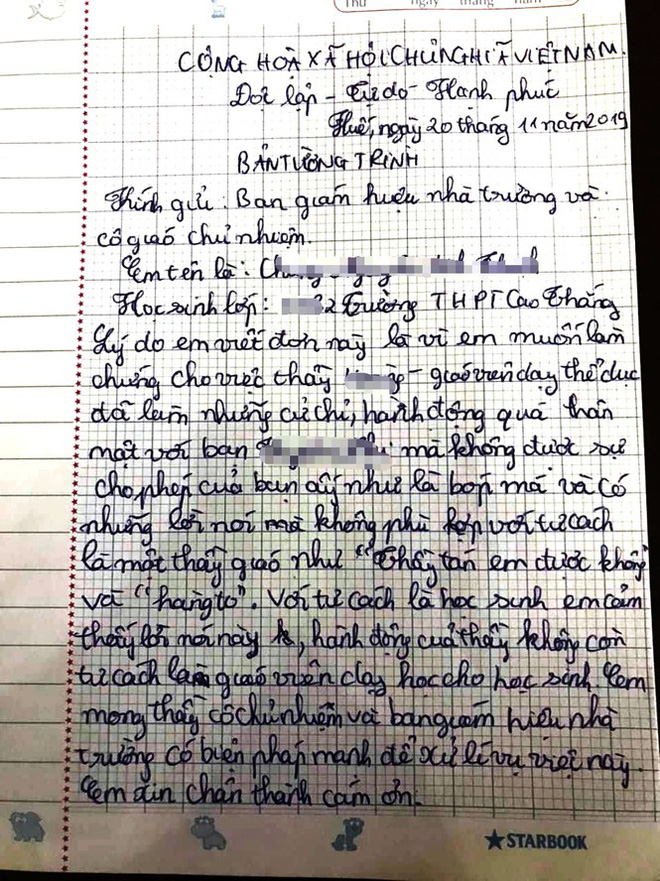 Thứ
ngày
tháng
năm
CỘNG HOÀ XÃ HỘI CHỦ NGHĨA VIỆT NAM.
Độc lập - Tự do - Hạnh phúc
Huế, ngày 20 tháng 11 năm 2019
BẢN TƯỜNG TRÌNH
Kính gửi : Ban giám hiệu nhà trường và
cô giáo chủ nhiệm.
Em tên là :
Học sinh lớp : 2 Trường THPT Cao Thắng
Lý do em viết đơn này là vì em muốn làm
chứng cho việc thầy - giáo viên dạy thể dục
đã làm những cử chỉ, hành động quá thân
mật với bạn mà không được sự
cho phép của bạn ấy như là bóp má và có
những lời nói mà không phù hợp với tư cách
là một thầy giáo như "Thầy tán em được không"
và "hàng to". Với tư cách là học sinh em cảm
thấy lời nói này, hành động của thầy không còn
tư cách làm giáo viên dạy học cho học sinh. Em
mong thầy cô chủ nhiệm và ban giám hiệu nhà
trường có biện pháp mạnh để xử lí vụ việc này.
Em xin chân thành cám ơn.
★STARBOOK